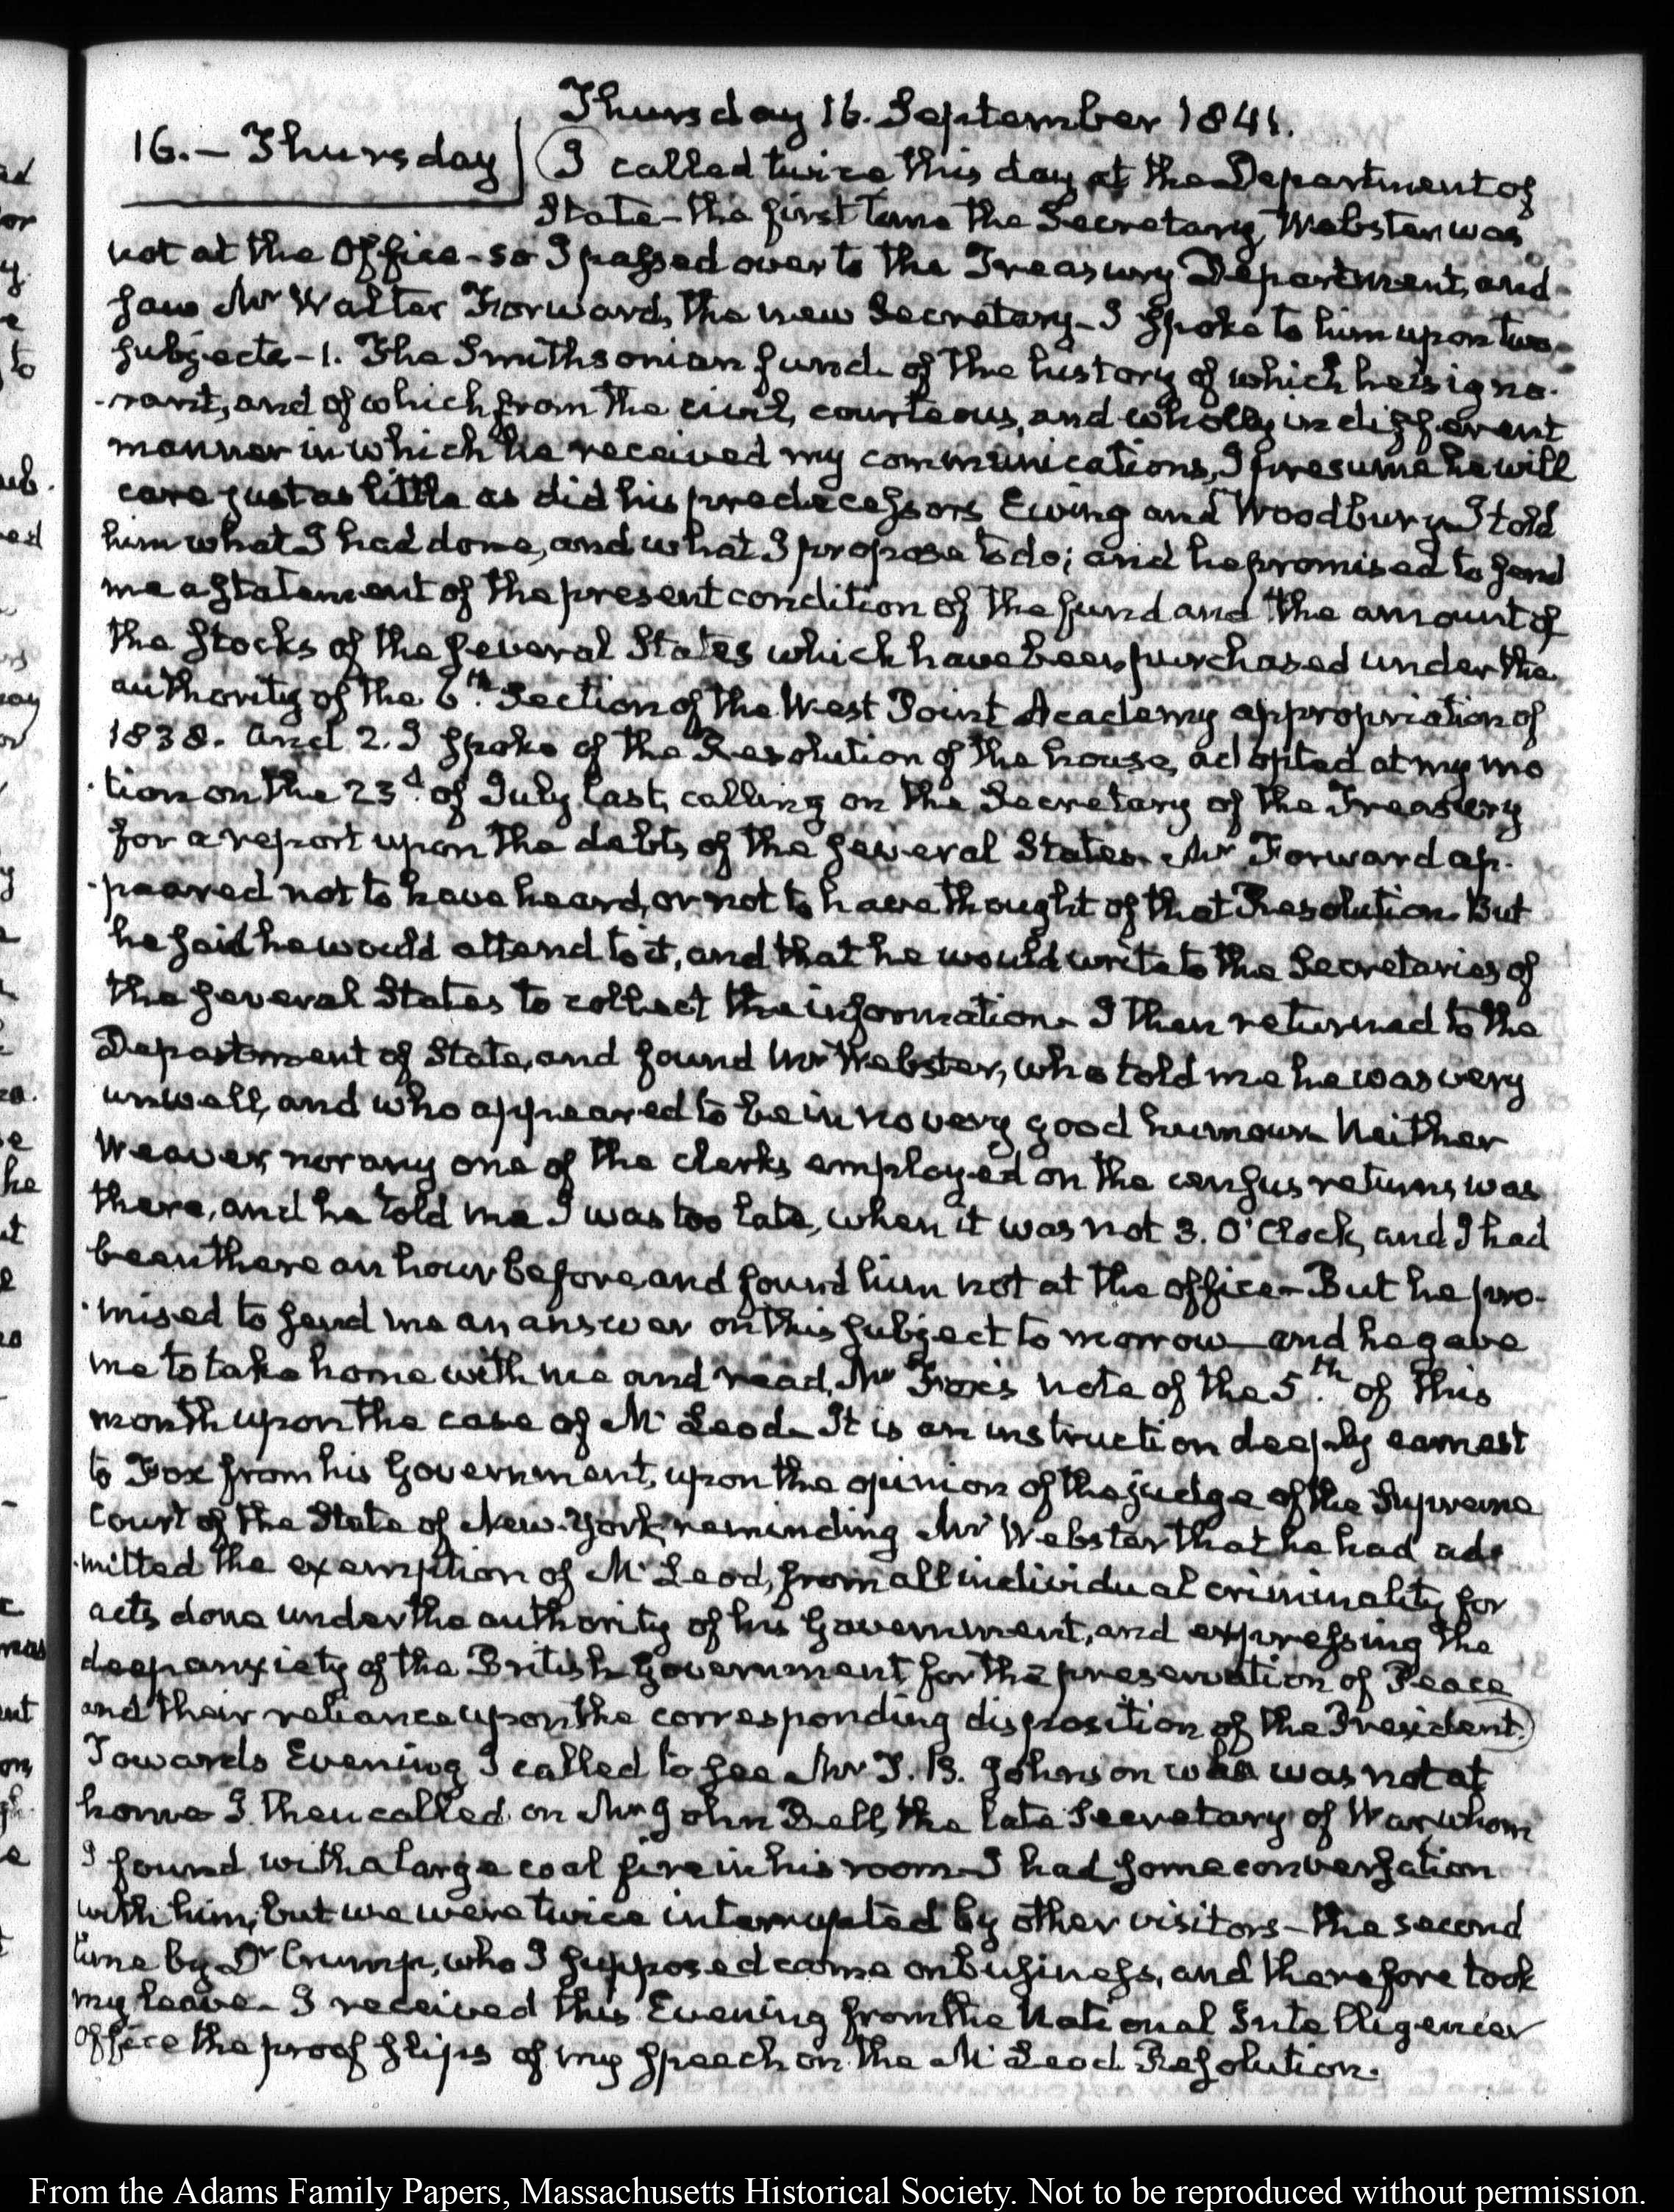 Thursday 16. September 1841.
16. — Thursday
I called twice this day at the Department of
State — the first time the Secretary, Webster was
not at the Office — so I passed over to the Treasury Department, and
saw Mr Walter Forward, the new Secretary — I spoke to him upon two
subjects — 1. The Smithsonian fund of the history of which he is igno-
-rant, and of which from the civil, courteous, and wholly indifferent
manner in which he received my communications, I presume he will
care just as little as did his predecessors Ewing and Woodbury. I told
him what I had done, and what I propose to do; and he promised to send
me a statement of the present condition of the fund and the amount of
the stocks of the several States which have been purchased under the
authority of the 6th. Section of the West Point Academy appropriation of
1838. and 2. I spoke of the Resolution of the house, adopted at my mo
-tion on the 23d. of July last, calling on the Secretary of the Treasury
for a report upon the debts of the several States. Mr Forward ap-
-peared not to have heard, or not to have thought of that Resolution. But
he said he would attend to it, and that he would write to the Secretaries of
the several States to collect the information. I then returned to the
Department of State, and found Mr Webster, who told me he was very
unwell, and who appeared to be in no very good humour. Neither
Weaver nor any one of the clerks employed on the census returns was
there, and he told me I was too late, when it was not 3. O'Clock, and I had
been there an hour before, and found him not at the office — But he pro-
-mised to send me an answer on this subject to morrow — and he gave
me to take home with me and read, Mr Fox's note of the 5th. of this
month upon the case of McLeod. It is an instruction deeply earnest
to Fox from his Government, upon the opinion of the judge of the Supreme
Court of the State of New-York, reminding Mr Webster that he had ad-
-mitted the exemption of McLeod, from all individual criminality for
acts done under the authority of his Government, and expressing the
deep anxiety of the British Government for the preservation of Peace
and their reliance upon the corresponding disposition of the President.
Towards Evening I called to see Mr T. B. Johnson who was not at
home I then called on Mr John Bell, the late Secretary of War, whom
I found with a large coal fire in his room. I had some conversation
with him, but we were twice interrupted by other visitors — the second
time by Dr Crump, who I supposed came on business, and therefore took
my leave. I received this Evening from the National Intelligencer
Office the proof slips of my speech on the McLeod Resolution.
From the Adams Family Papers, Massachusetts Historical Society. Not to be reproduced without permission.